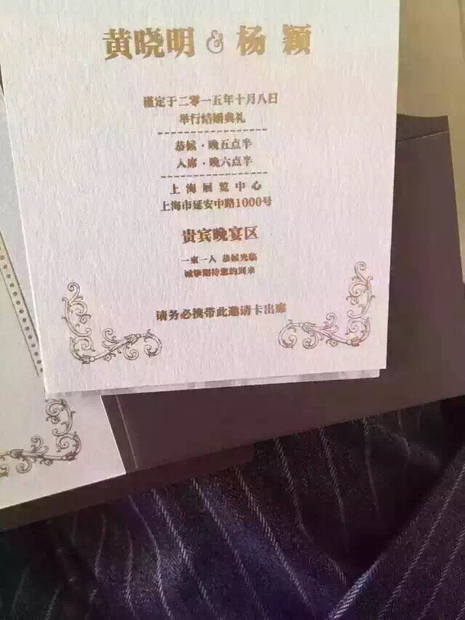 黄晓明 & 杨 颖
谨定于二零一五年十月八日
举行结婚典礼
恭候·晚五点半
入席·晚六点半
上海展览中心
上海市延安中路1000号
贵宾晚宴区
一柬一人 恭候光临
诚挚期待您的到来
请务必携带此邀请卡出席